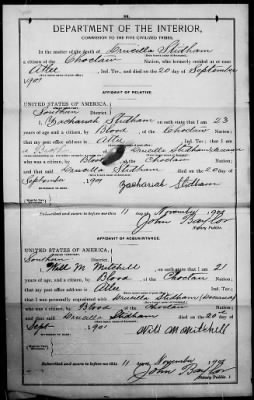 DEPARTMENT OF THE INTERIOR,
COMMISSION TO THE FIVE CIVILIZED TRIBES.
In the matter of the death of Drucilla Stidham
a citizen of the Choctaw Nation, who formerly resided at or near
Atlee, Ind. Ter., and died on the 20 day of September
1901
AFFIDAVIT OF RELATIVE.
UNITED STATES OF AMERICA,
Southern District.
I, Zachariah Stidham, on oath state that I am 23
years of age and a citizen, by Blood, of the Choctaw Nation;
that my post office address is Atlee, Ind. Ter.; that I am
Drucilla Stidham
by Blood, of the Choctaw Nation;
and that said Drucilla Stidham died on the 20 day of
September, 1901
Zachariah Stidham
Subscribed and sworn to before me this 11 day of November, 190
John Baylor
Notary Public.
AFFIDAVIT OF ACQUAINTANCE.
UNITED STATES OF AMERICA,
Southern District.
I, Will M. Mitchell, on oath state that I am 21
years of age, and a citizen by Blood of the Choctaw Nation;
that my post office address is Atlee, Ind. Ter.;
that I was personally acquainted with Drucilla Stidham (Deceased)
by Blood, of the Choctaw Nation;
and that said Drucilla Stidham died on the 20th day of
Sept, 1901
Will M Mitchell
Subscribed and sworn to before me this 11 day of November, 190
John Baylor
Notary Public.